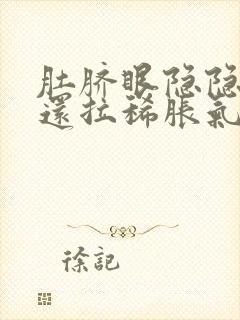 肚脐眼隐隐
還拉稀脹氣
徐記